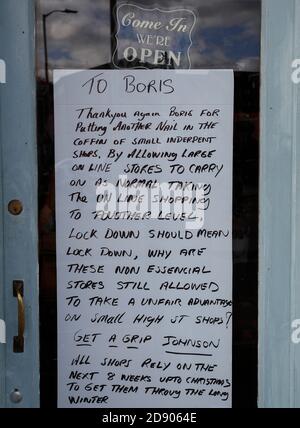 Come In
WE'RE
OPEN
TO BORIS
Thankyou again Boris for
Putting Another Nail in the
coffin of small inderpent
shops, By Allowing Large
on line stores to carry
on as normal taking
the on line shopping
to Fouther level,
Lock Down should mean
Lock Down, why are
these non essencial
stores still allowed
to take a unfair advantage
on small high st shops?
Get A Grip Johnson
All shops rely on the
next 8 weeks upto christmas
to get them throuy the long
winter
alamy
alamy
Image ID: 2D9064E
www.alamy.com